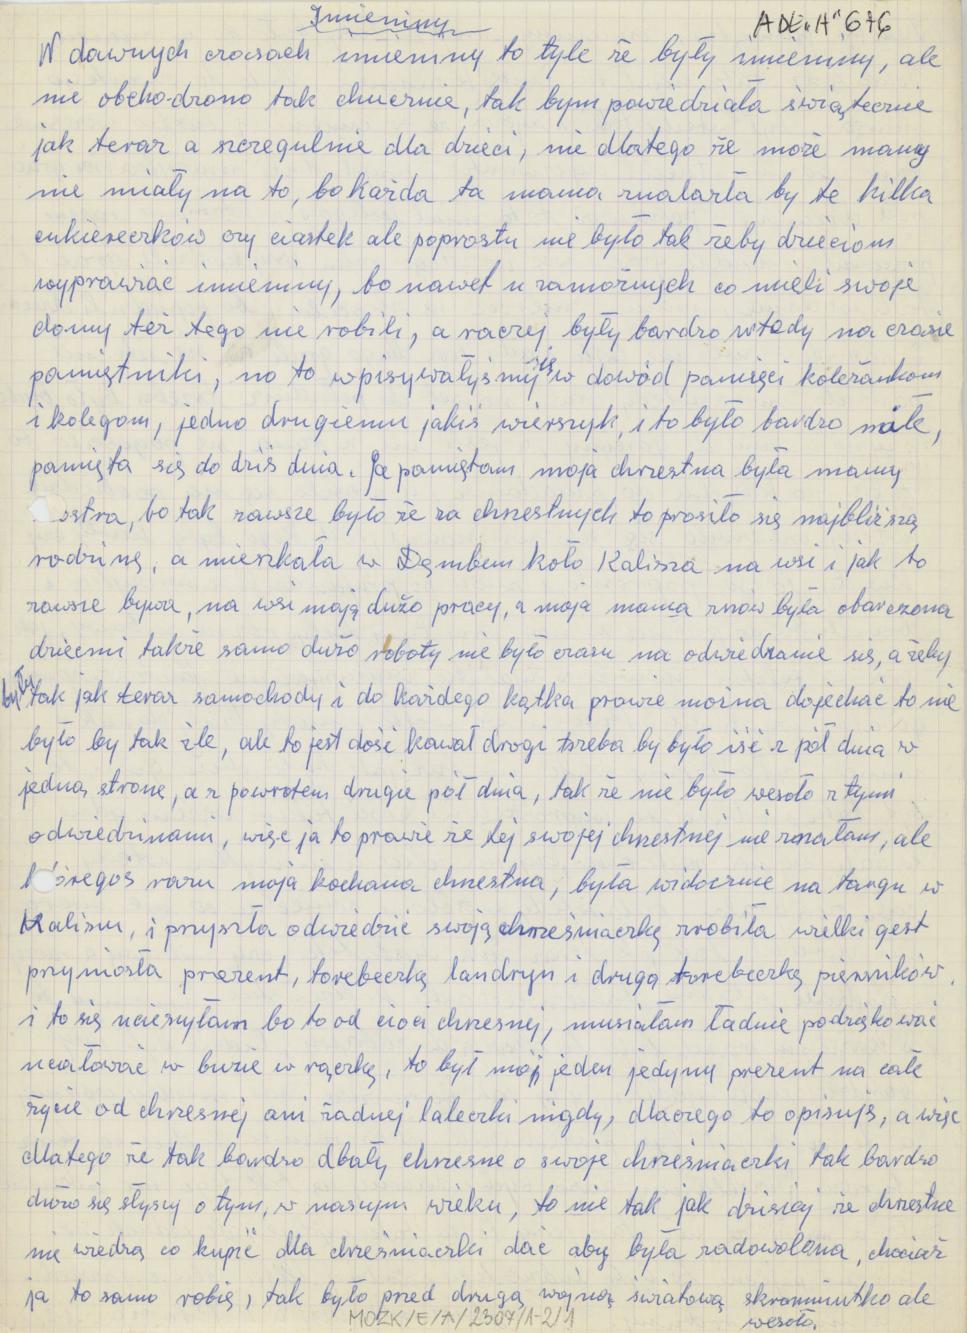 Imieniny
ADL "H" 676
W dawnych czasach imieniny to tyle że były imieniny, ale
nie obchodzono tak chucznie, tak bym powiedziała świątecznie
jak teraz a szczegulnie dla dzieci, nie dlatego że może mamy
nie miały na to, bo każda ta mama znalazła by te kilka
cukiereczków czy ciastek ale poprostu nie było tak żeby dzieciom
wyprawiać imieniny, bo nawet u zamożnych co mieli swoje
domy też tego nie robili, a raczej były bardzo wtedy na czasie
pamiętniki, no to wpisywałyśmy się w dowód pamięci koleżankom
i kolegom, jedno drugiemu jakiś wierszyk, i to było bardzo miłe,
pamięta się do dziś dnia. Ja pamiętam moja chrzestna była mamy
ostra, bo tak zawsze było że za chrzestnych to prosiło się najbliższą
rodzinę, a mieszkała w Dęmbem koło Kalisza na wsi i jak to
zawsze bywa, na wsi mają dużo pracy, a moja mama znów była obarczona
dziećmi także samo dużo roboty nie było czasu na odwiedzanie się, a żeby
były tak jak teraz samochody i do każdego kątka prawie można dojechać to nie
było by tak źle, ale to jest dość kawał drogi trzeba by było iść z pół dnia w
jedną stronę, a z powrotem drugie pół dnia, tak że nie było wesoło z tymi
odwiedzinami, więc ja to prawie że tej swojej chrzestnej nie znałam, ale
któregoś razu moja kochana chrzestna, była widocznie na targu w
Kaliszu, i przyszła odwiedzić swoją chrześniaczkę zrobiła wielki gest
przyniosła prezent, torebeczkę landryn i drugą torebeczkę pierników.
i to się ucieszyłam bo to od cioci chrzesnej, musiałam ładnie podziękować
ucałować w buzie w rączkę, to był mój jeden jedyny prezent na całe
życie od chrzesnej ani żadnej laleczki nigdy, dlaczego to opisuję, a więc
dlatego że tak bardzo dbały chrzesne o swoje chrześniaczki tak bardzo
dużo się słyszy o tym, w naszym wieku, to nie tak jak dzisiaj że chrzestne
nie wiedzą co kupić dla chrześniaczki dać aby była zadowolona, chociaż
ja to samo robię, tak było przed drugą wojną światową skromniutko ale
wesoło.
MOZK/E/A/2307/1-2/1